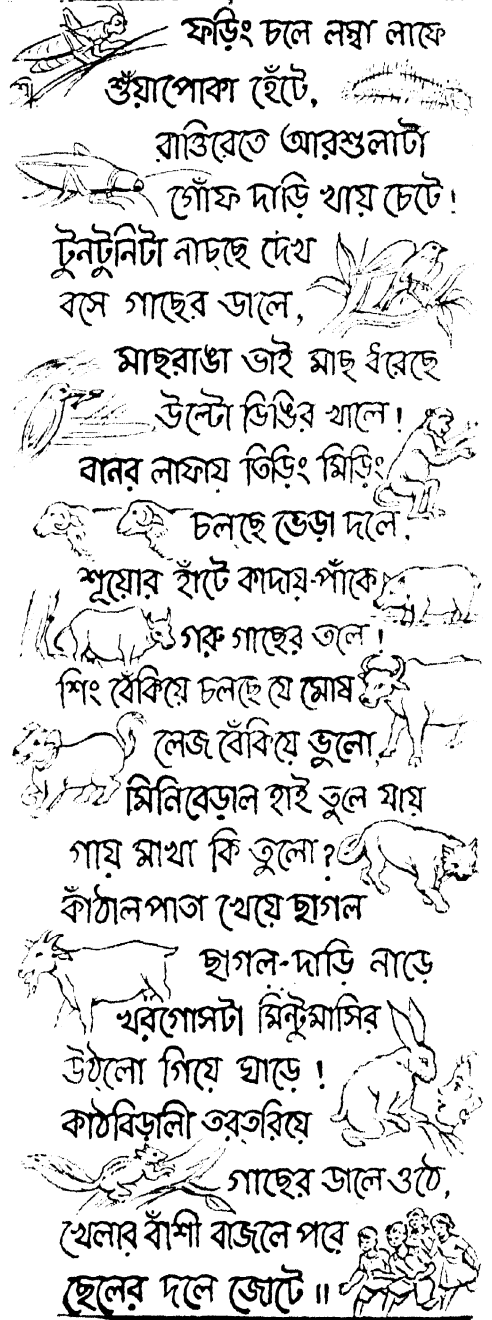 ফড়িং চলে লম্বা লাফে
শুঁয়াপোকা হেঁটে,
রাত্তিরেতে আরশুলাটা
গোঁফ দাড়ি খায় চেটে!
টুনটুনিটা নাচছে দেখ
বসে গাছের ডালে,
মাছরাঙা ভাই মাছ ধরেছে
উল্টো ডিঙির খালে!
বানর লাফায় তিড়িং মিড়িং
চলছে ভেড়া দলে,
শূয়োর হাঁটে কাদায়-পাঁকে
গরু গাছের তলে!
শিং বেঁকিয়ে চলছে যে মোষ
লেজ বেঁকিয়ে ভুলো,
মিনিবেড়াল হাই তুলে যায়
গায় মাখা কি তুলো?
কাঁঠালপাতা খেয়ে ছাগল
ছাগল-দাড়ি নাড়ে
খরগোসটা মিন্টুমাসির
উঠলো গিয়ে ঘাড়ে!
কাঠবিড়ালী তর্‌তরিয়ে
গাছের ডালে ওঠে,
খেলার বাঁশী বাজলে পরে
ছেলের দলে জোটে॥